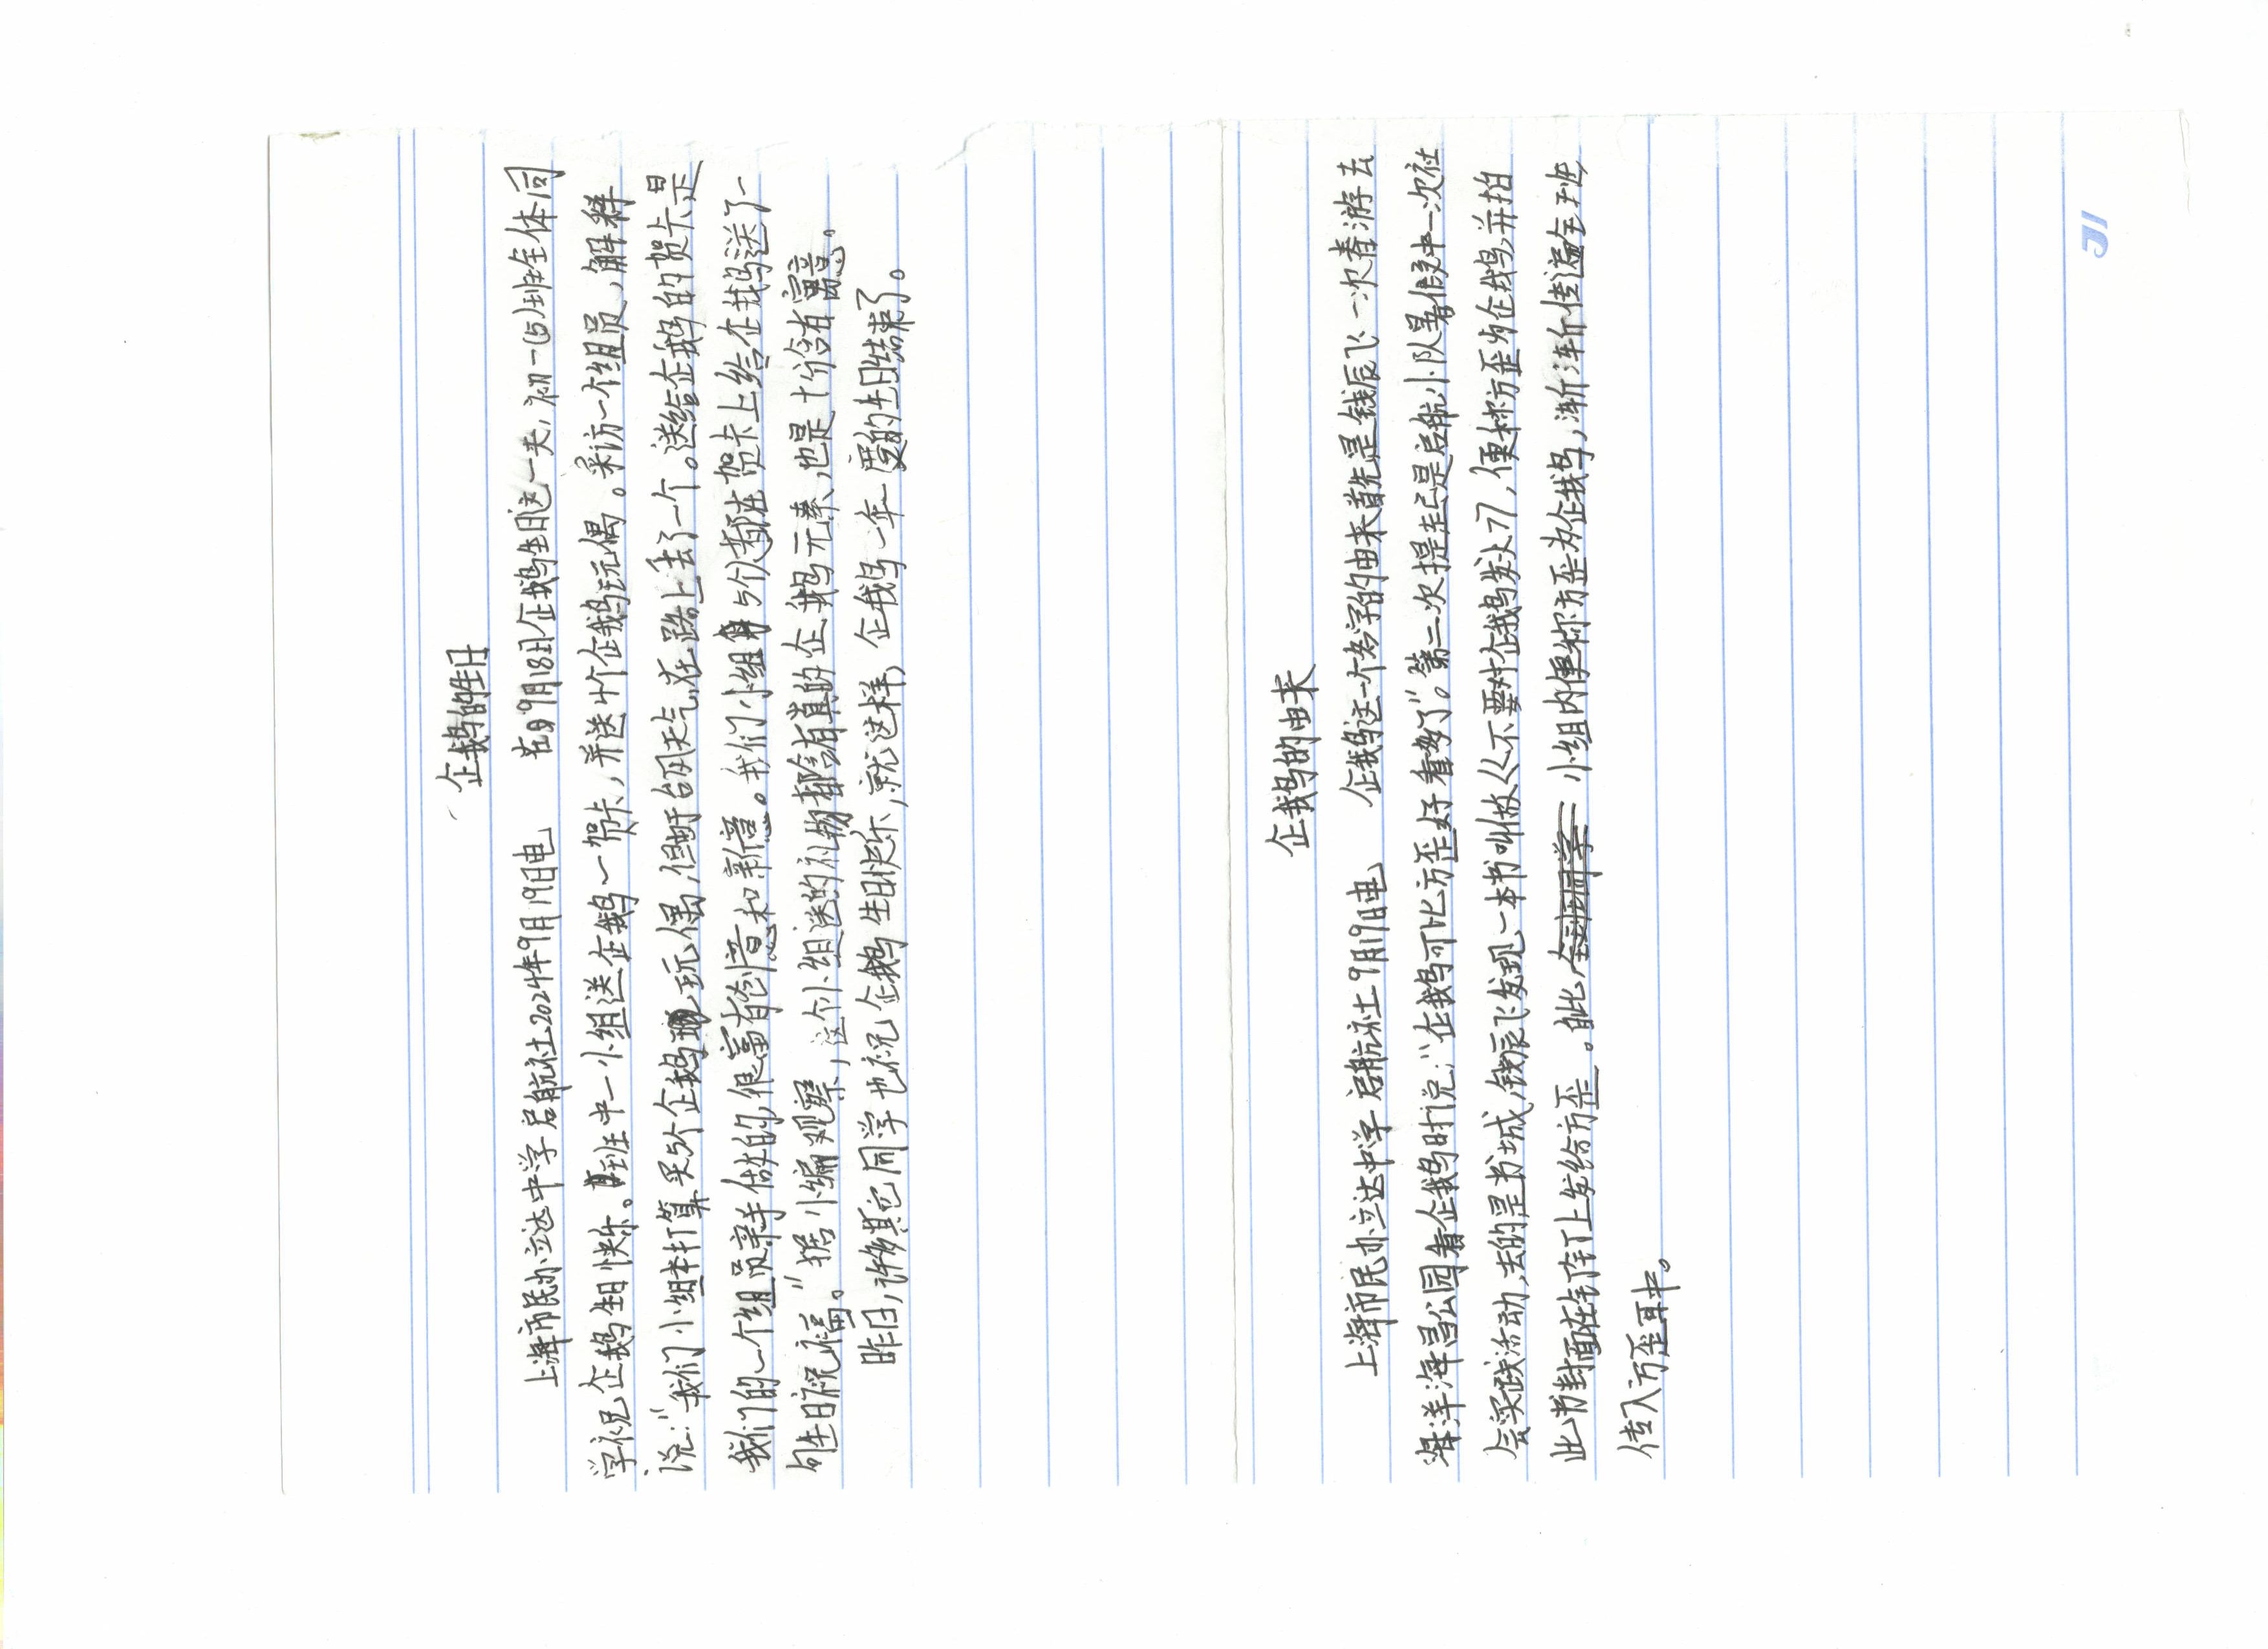 企鹅的生日
上海市民办立达中学启航社2024年9月19日电 在9月18日企鹅生日这一天,初一(5)班全体同
学祝企鹅生日快乐。班中一小组送企鹅一贺卡,并送4个企鹅玩偶。采访一个组员,解释
说:“我们小组本打算买5个企鹅玩偶,但由于台风天气,在路上丢了一个。送给企鹅的贺卡是
我们的一个组员亲手做的,很富有创意和新意。我们小组5个人都在贺卡上给企鹅送了一
句生日祝福。”据小编观察,这个小组送的礼物都含有真的企鹅元素,也是十分含有寓意。
昨日,许多其它同学也祝企鹅生日快乐,就这样,企鹅一年一度的生日结束了。
企鹅的由来
上海市民办立达中学启航社9月19日电 企鹅这一个名字的由来首先是钱辰飞一次春游去
海洋海昌公园看企鹅时说:“企鹅可比方歪好看多了”。第二次提起是启航小队暑假中一次社
会实践活动,去的是书城,钱辰飞发现一本书叫做《不要对企鹅发火》,便称方歪为企鹅,并拍
此书封面在钉钉上发给方歪。自此小组内便称方歪为企鹅,渐渐传遍全班,
传入方歪耳中。